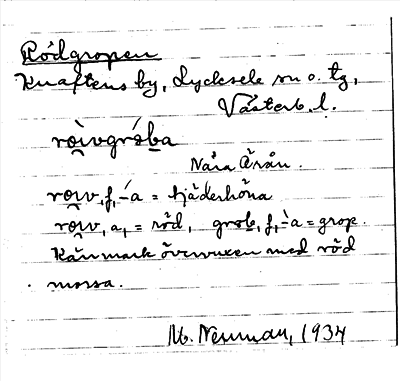 Rödgropen
Knaftens by, Lycksele sn o. tg,
Västerb. l.
ro̯ìvgró́ba
Nära Örån.
row, f, -́a = tjäderhöna
row, a, = röd, grob, f, -̀a = grop.
Kärrmark övervuxen med röd
mossa.
M. Neuman, 1934